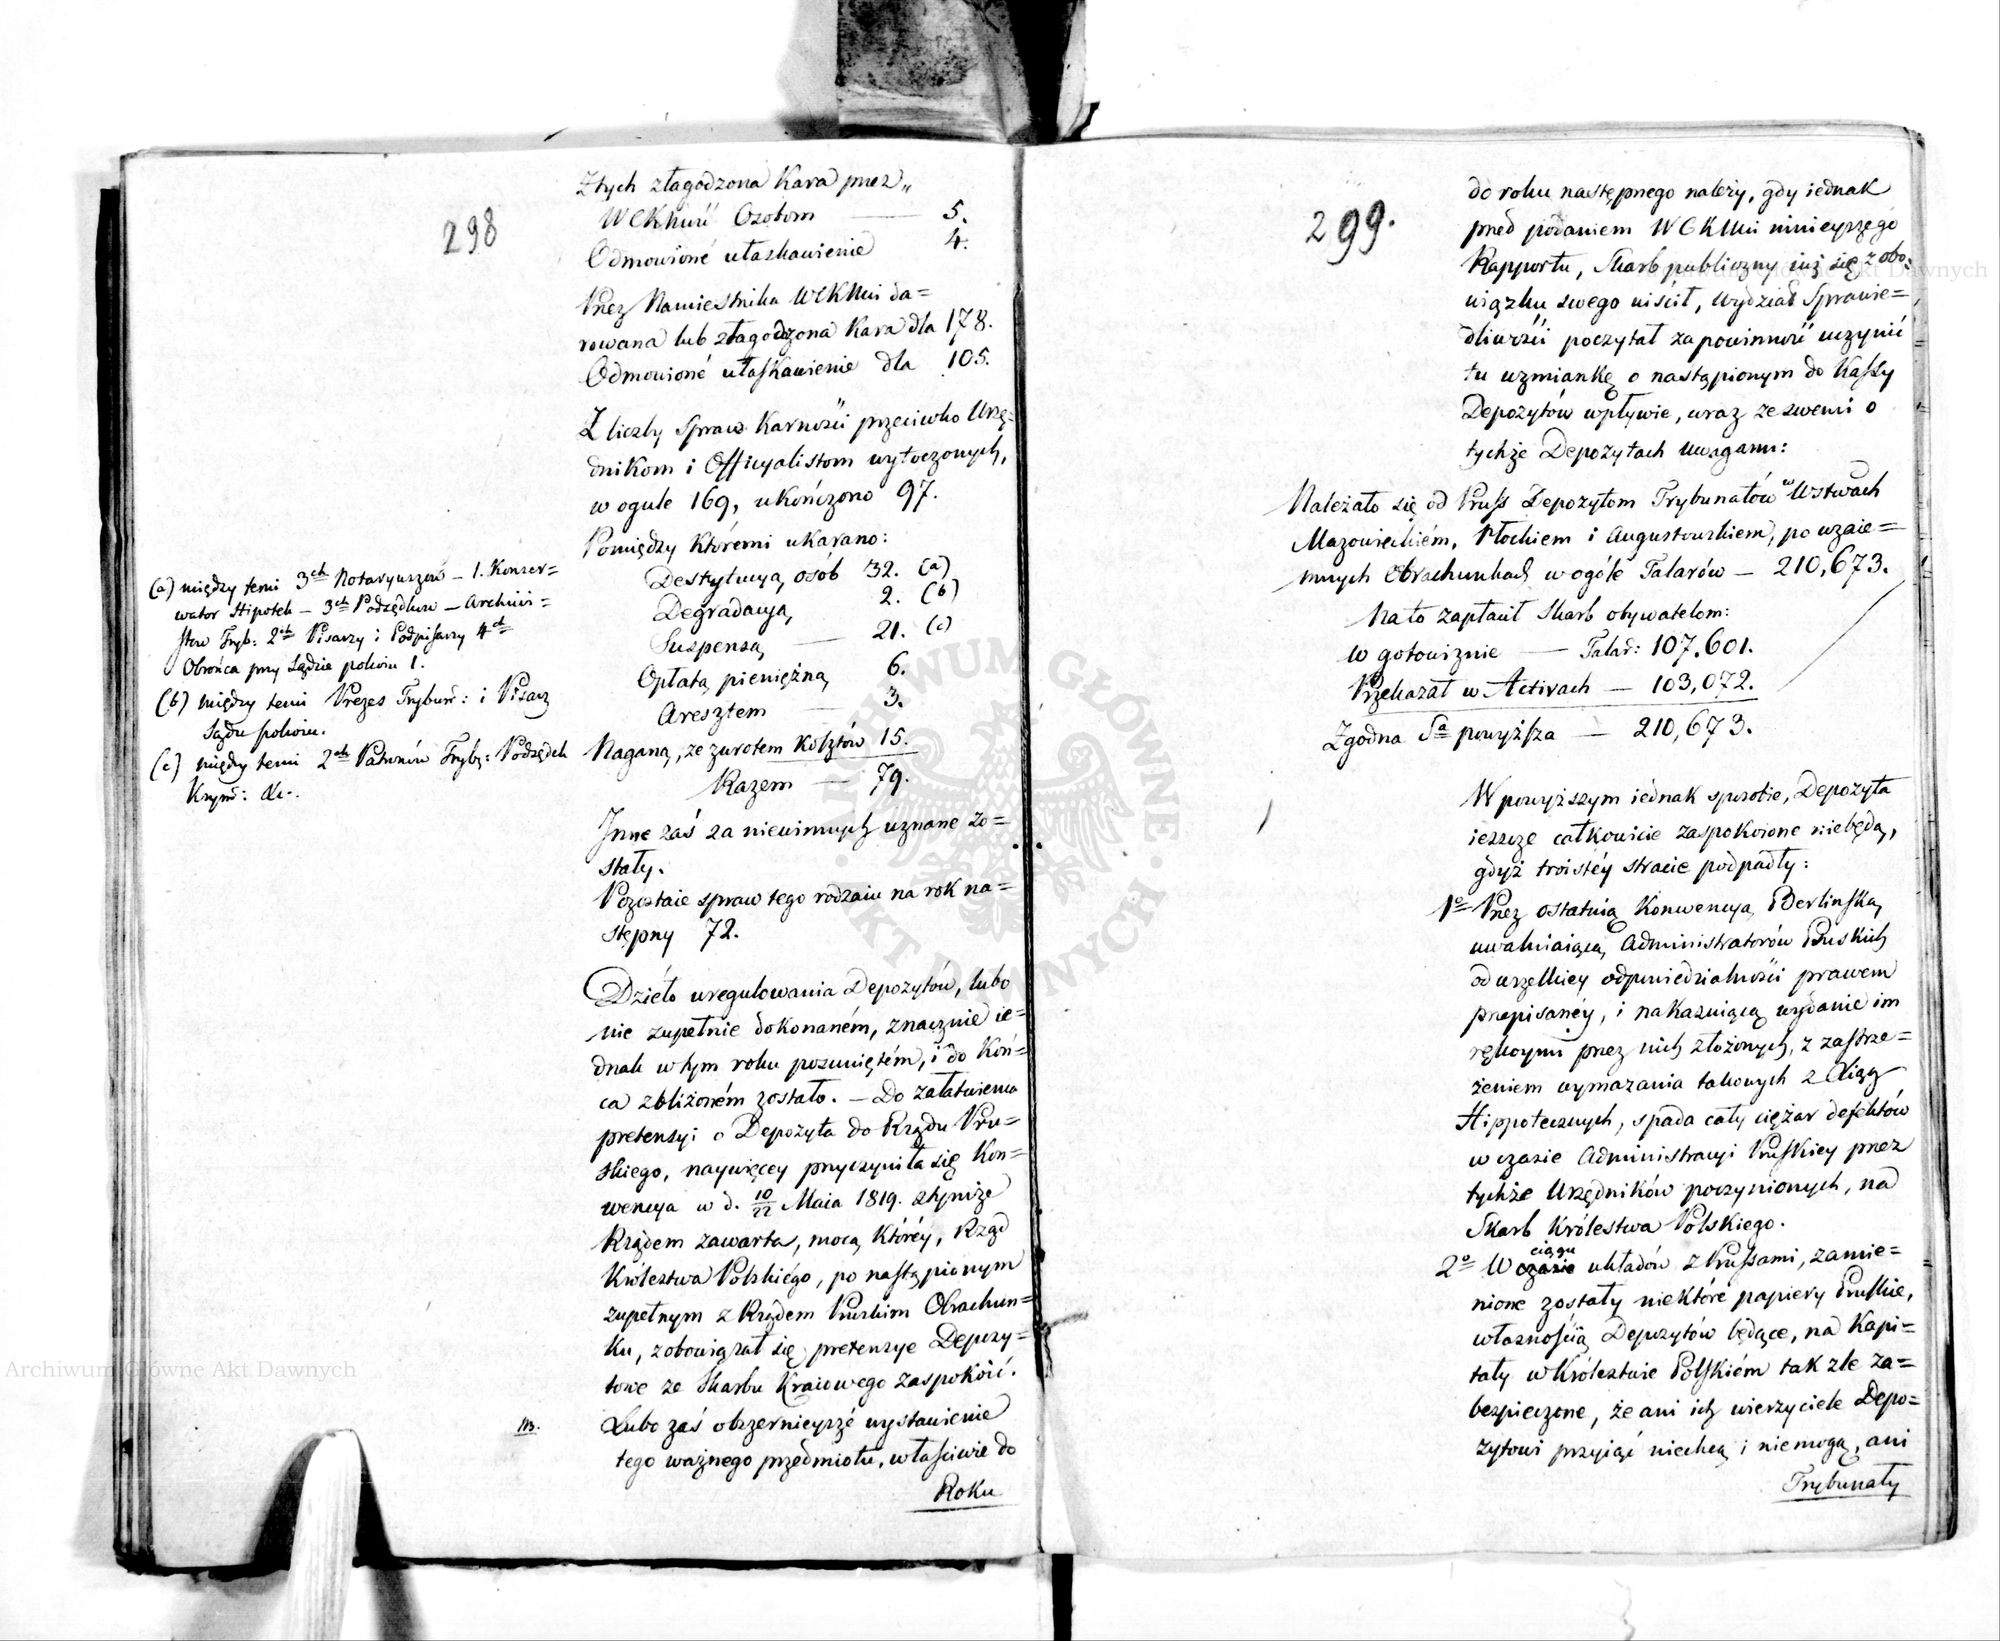 298
Z tych złagodzona Kara przez „
WCKMść Osobom — 5.
Odmowioné ułaskawienie 4.
Przez Namiestnika WCKMci da=
rowana lub złagodzona Kara dla 178.
Odmowioné ułaskawienie dla 105.
Z liczby Spraw Karności przeciwko Urzę=
dnikom i Officyalistom wytoczonych,
w ogule 169, ukończono 97.
Pomiędzy któremi ukarano:
Destytucyą osób 32. (a)
Degradacyą 2. (b)
Suspensą — 21. (c)
Opłatą pieniężną 6.
Aresztem — 3.
Naganą, ze zwrotem Kosztów 15.
Razem — 79.
Inne zaś za niewinnych uznane zo=
stały.
Pozostaie spraw tego rodzaiu na rok na=
stępny 72.
(a) między temi 3ch Notaryuszów — 1. Konser=
wator Hipotek — 3ch Podsędków — Archiwi=
stów Tryb: 2ch Pisarzy i Podpisarzy 4ch
Obrońca przy Sądzie pokoiu 1.
(b) między temi Prezes Trybun: i Pisarz
Sądu pokoiu.
(c) między temi 2ch Patronów Tryb: Podsędek
Krym: &c.
Dzieło uregulowania Depozytów, lubo
nie zupełnie dokonaném, znacznie ie=
dnak w tym roku posuniętém, i do Koń=
ca zbliżoném zostało. — Do załatwienia
pretensyi o Depozyta do Rządu Pru=
skiego, naywięcey przyczyniła się Kon=
wencya w d. 10/22 Maia 1819. z tymże
Rządem zawarta, mocą któréy, Rząd
Królestwa Polskiégo, po nastąpionym
zupełnym z Rządem Pruskim Obrachun=
ku, zobowiązał się pretensye Depozy=
towe ze Skarbu Kraiowego zaspokoić.
Lubo zaś obszernieyszé wystawienie
tego ważnego przedmiotu, właściwie do
Roku
299.
do roku następnego należy, gdy iednak
przed podaniem WCKMci ninieyszego
Rapportu, Skarb publiczny iuż się z obo=
wiązku swego uiścił, Wydział Sprawie=
dliwości poczytał za powinność uczynić
tu wzmiankę o nastąpionym do Kassy
Depozytów wpływie, wraz ze swemi o
tychże Depozytach uwagami:
Należało się od Pruss Depozytom Trybunałów w Wstwach
Mazowieckiém, Płockiem i Augustowskiem, po wzaie=
mnych Obrachunkach w ogóle Talarów — 210,673.
Na to zapłacił Skarb obywatelom:
w gotowiznie — Talar: 107,601.
Przekazał w Activach — 103,072.
Zgodna Sa powyższa — 210,673.
W powyższym iednak sposobie, Depozyta
ieszcze całkowicie zaspokoione niebędą,
gdyż troistéy stracie podpadły:
1o Przez ostatnią Konwencyą Berlińską,
uwalniaiącą Administratorów Pruskich
od wszelkiey odpowiedzialności prawem
przepisanéy, i nakazuiącą wydanie im
rękoymi przez nich złożonych, z zastrze=
żeniem wymazania takowych z Xiąg
Hippotecznych, spada cały ciężar defektów
w czasie Administracyi Pruskiey przez
tychże Urzędników poczynionych, na
Skarb Królestwa Polskiego.
2o W ciągu układów z Prussami, zamie=
nione zostały niektóré papiery Pruskie,
własnością Depozytów będące, na Kapi=
tały w Królestwie Polskiém tak zle za=
bezpieczone, że ani ich wierzyciele Depo=
zytowi przyiąć niechcą i niemogą, ani
Trybunały
Archiwum Główne Akt Dawnych
Archiwum Główne Akt Dawnych
ARCHIWUM GŁÓWNE · AKT DAWNYCH ·